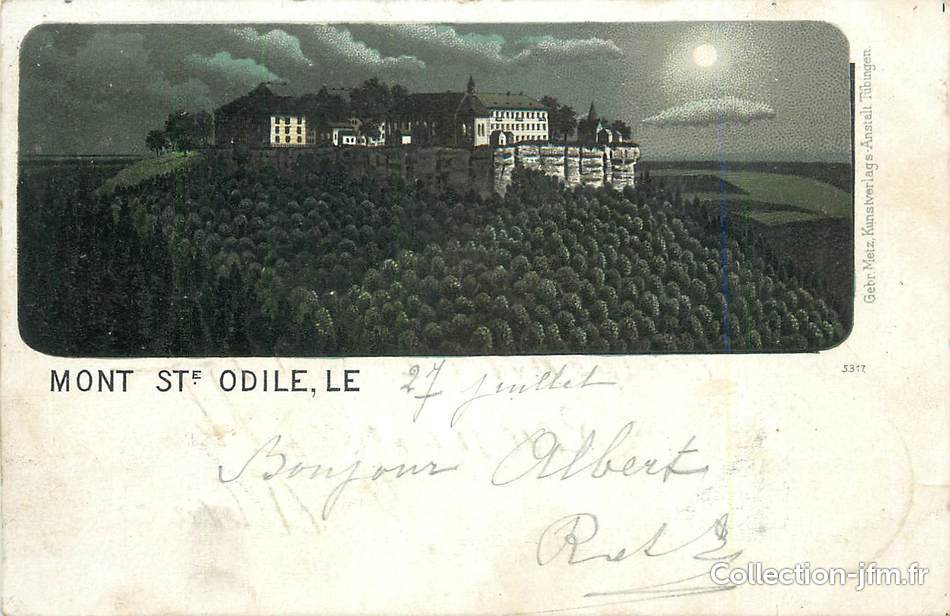 Gebr. Metz, Kunstverlags-Anstalt Tübingen.
MONT STE ODILE, LE 27 juillet
5317
Bonjour Albert
Collection-jfm.fr